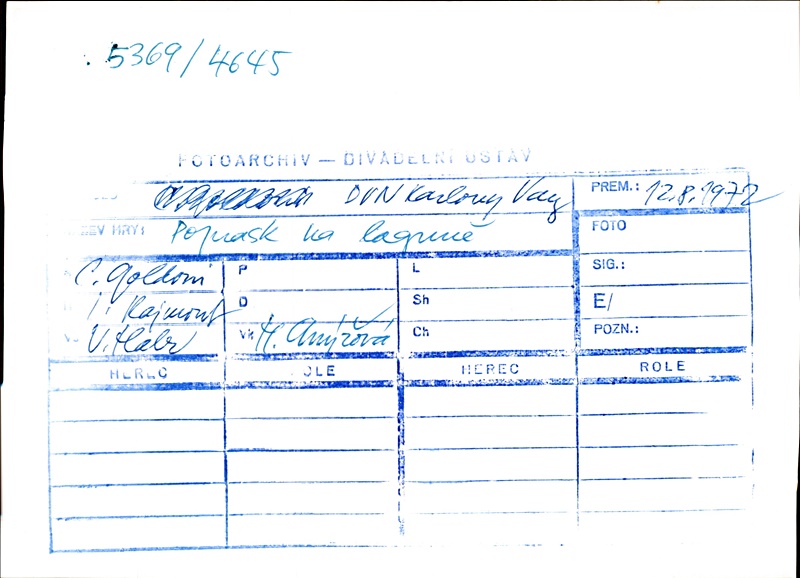 5369/4645
FOTOARCHIV — DIVADELNÍ ÚSTAV
DVN Karlovy Vary PREM.: 12.8.1972
EV HRY: Poprask na laguně FOTO
C. Goldoni P L SIG.:
I. Rajmont D Sh E/
V. Vk H. Anýžová Ch POZN.:
HEREC OLE HEREC ROLE